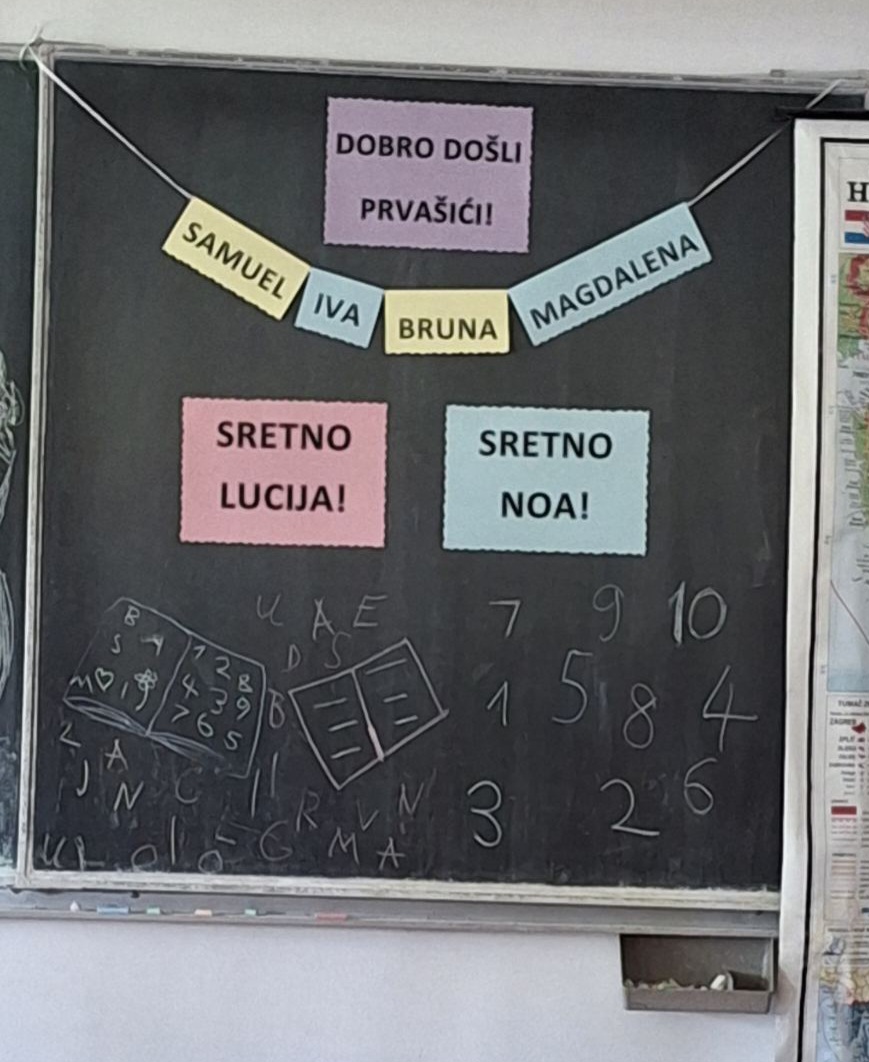 DOBRO DOŠLI
PRVAŠIĆI!
SAMUEL
IVA
BRUNA
MAGDALENA
SRETNO
LUCIJA!
SRETNO
NOA!
U A E
7 9 10
B
S
1 2 8
4 3 9
7 6 5
D S
B
1 5 8 4
A
J N C
R V N
3 2 6
G M A
H
TUMAČ
ZAGREB